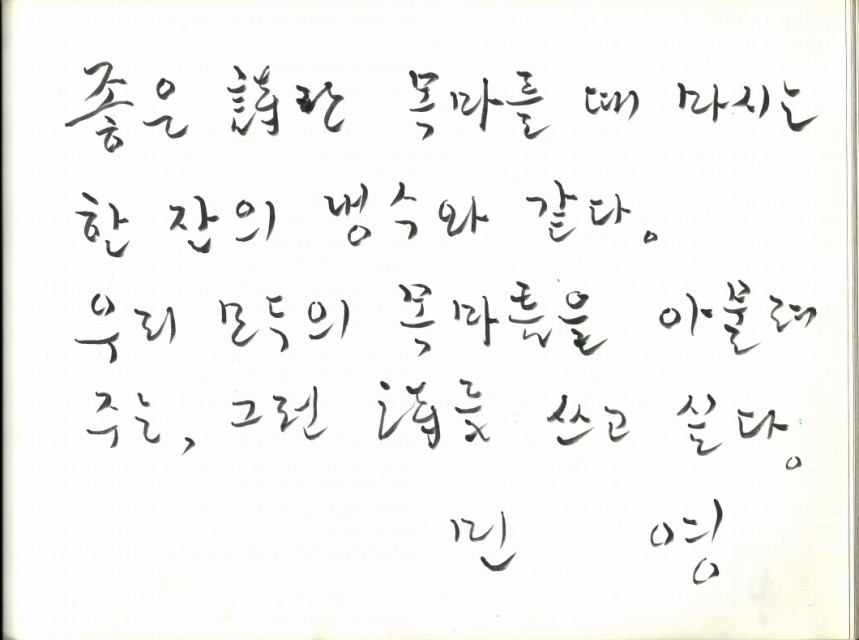 좋은 詩란 목마를 때 마시는
한 잔의 냉수와 같다.
우리 모두의 목마름을 아물려
주는, 그런 詩를 쓰고 싶다.
민 영